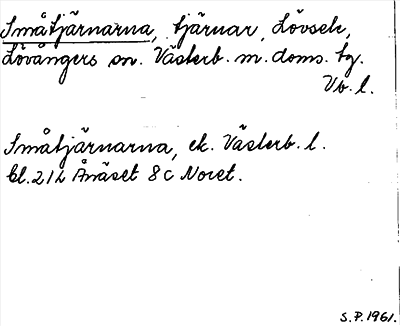 Småtjärnarna, tjärnar, Lövsele,
Lövångers sn. Västerb. m. doms. tg.
Vb. l.
Småtjärnarna, ek. Västerb. l.
bl. 21 L Ånäset 8c Noret.
S.P. 1961.